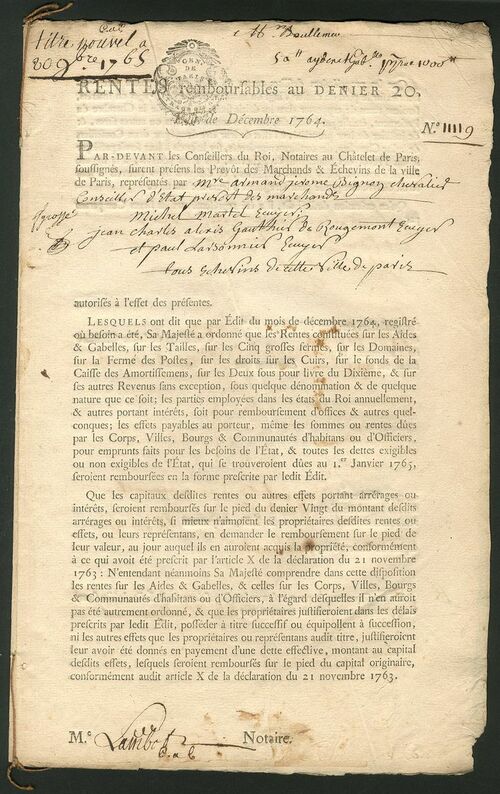 titre nouvel a
80 9bre 1765
RENTES remboursables au DENIER 20,
Édit de Décembre 1764.
N.º 11119
PAR-DEVANT les Conseillers du Roi, Notaires au Châtelet de Paris,
soussignés, furent présens les Prevôt des Marchands & Échevins de la ville
de Paris, représentés par Mre armand jerome Bignon chevalier
Conseiller d'Etat prevost des marchands
Michel Martel Ecuyer
jean charles alexis Gauthier de Rougemont Ecuyer
et paul Larsonnier Ecuyer
tous echevins de cette ville de paris
autorisés à l'effet des présentes.
LESQUELS ont dit que par Édit du mois de décembre 1764, registré
où besoin a été, Sa Majesté a ordonné que les Rentes constituées sur les Aides
& Gabelles, sur les Tailles, sur les Cinq grosses fermes, sur les Domaines,
sur la Ferme des Postes, sur les droits sur les Cuirs, sur le fonds de la
Caisse des Amortissemens, sur les Deux sous pour livre du Dixième, & sur
ses autres Revenus sans exception, sous quelque dénomination & de quelque
nature que ce soit; les parties employées dans les états du Roi annuellement,
& autres portant intérêts, soit pour remboursement d'offices & autres quel-
conques; les effets payables au porteur, même les sommes ou rentes dûes
par les Corps, Villes, Bourgs & Communautés d'habitans ou d'Officiers,
pour emprunts faits pour les besoins de l'État, & toutes les dettes exigibles
ou non exigibles de l'État, qui se trouveroient dûes au 1.er Janvier 1765,
seroient remboursées en la forme prescrite par ledit Édit.
Que les capitaux desdites rentes ou autres effets portant arrérages ou
intérêts, seroient remboursés sur le pied du denier Vingt du montant desdits
arrérages ou intérêts, si mieux n'aimoient les propriétaires desdites rentes ou
effets, ou leurs représentans, en demander le remboursement sur le pied de
leur valeur, au jour auquel ils en auroient acquis la propriété, conformément
à ce qui avoit été prescrit par l'article X de la déclaration du 21 novembre
1763: N'entendant néanmoins Sa Majesté comprendre dans cette disposition
les rentes sur les Aides & Gabelles, & celles sur les Corps, Villes, Bourgs
& Communautés d'habitans ou d'Officiers, à l'égard desquelles il n'en auroit
pas été autrement ordonné, & que les propriétaires justifieroient dans les délais
prescrits par ledit Édit, posséder à titre successif ou équipollent à succession,
ni les autres effets que les propriétaires ou représentans audit titre, justifieroient
leur avoir été donnés en payement d'une dette effective, montant au capital
desdits effets, lesquels seroient remboursés sur le pied du capital originaire,
conformément audit article X de la déclaration du 21 novembre 1763.
M.e Lambot Notaire.